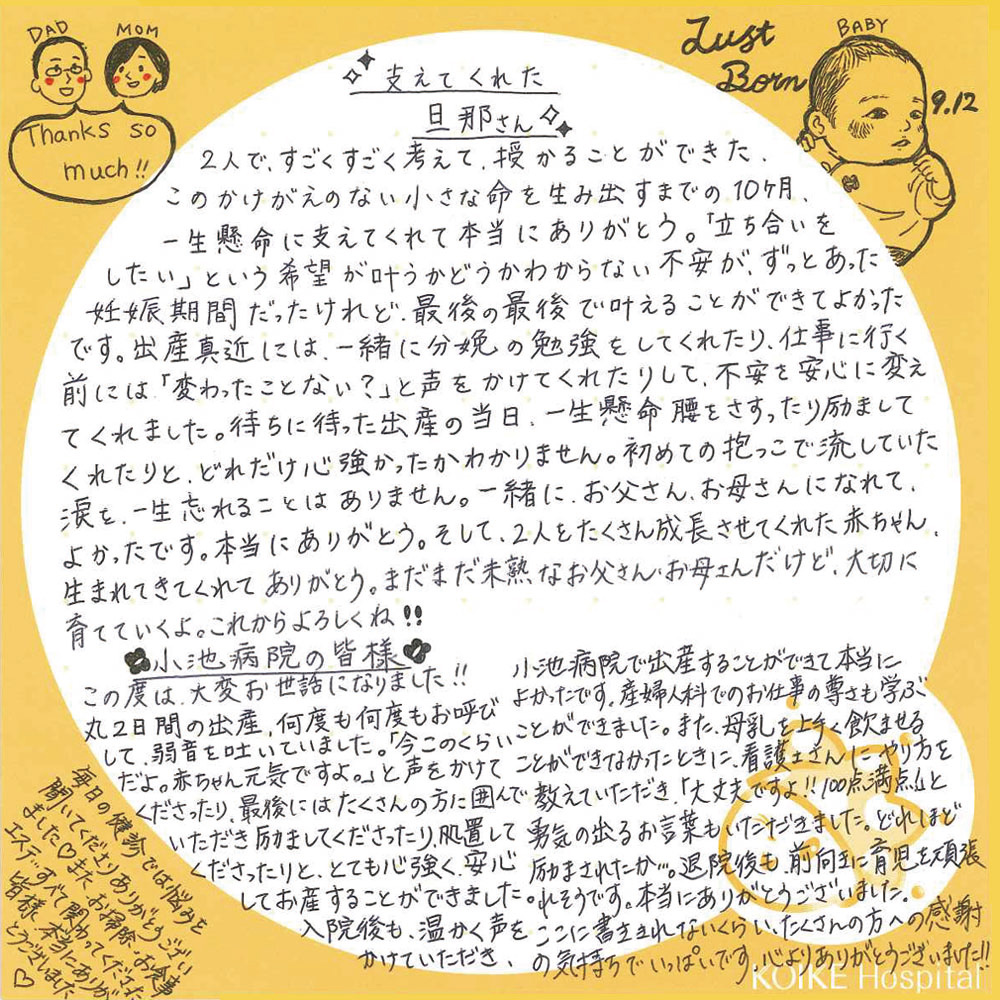 DAD MOM
Thanks so
much!!
Just
Born
BABY
9.12
支えてくれた
旦那さん
2人で、すごくすごく考えて、授かることができた、
このかけがえのない小さな命を生み出すまでの10ヶ月、
一生懸命に支えてくれて本当にありがとう。「立ち合いを
したい」という希望が叶うかどうかわからない不安が、ずっとあった
妊娠期間だったけれど、最後の最後で叶えることができてよかった
です。出産真近には、一緒に分娩の勉強をしてくれたり、仕事に行く
前には「変わったことない?」と声をかけてくれたりして、不安を安心に変え
てくれました。待ちに待った出産の当日、一生懸命腰をさすったり励まして
くれたりと、どれだけ心強かったかわかりません。初めての抱っこで流していた
涙を、一生忘れることはありません。一緒に、お父さん、お母さんになれて、
よかったです。本当にありがとう。そして、2人をたくさん成長させてくれた赤ちゃん、
生まれてきてくれてありがとう。まだまだ未熟なお父さん・お母さんだけど、大切に
育てていくよ。これからよろしくね!!
小池病院の皆様
この度は、大変お世話になりました!!
丸2日間の出産、何度も何度もお呼び
して、弱音を吐いていました。「今このくらい
だよ。赤ちゃん元気ですよ。」と声をかけて
くださったり、最後にはたくさんの方に囲んで
いただき励ましてくださったり、処置して
くださったりと、とても心強く、安心
してお産することができました。
入院後も、温かく声を
かけていただき、
小池病院で出産することができて本当に
よかったです。産婦人科でのお仕事の尊さも学ぶ
ことができました。また、母乳を上手く飲ませる
ことができなかったときに、看護士さんにやり方を
教えていただき、「大丈夫ですよ!!100点満点」と
勇気の出るお言葉もいただきました。どれほど
励まされたか…。退院後も、前向きに育児を頑張
れそうです。本当にありがとうございました。
ここに書ききれないくらい、たくさんの方への感謝
の気持ちでいっぱいです。心よりありがとうございました!!
毎日の健診では悩みを
聞いてくださりありがとうござい
ました♡また、お掃除、お食事
エステ、すべて関わってくださった
皆様、本当にありが
とうございました
♡
KOIKE Hospital